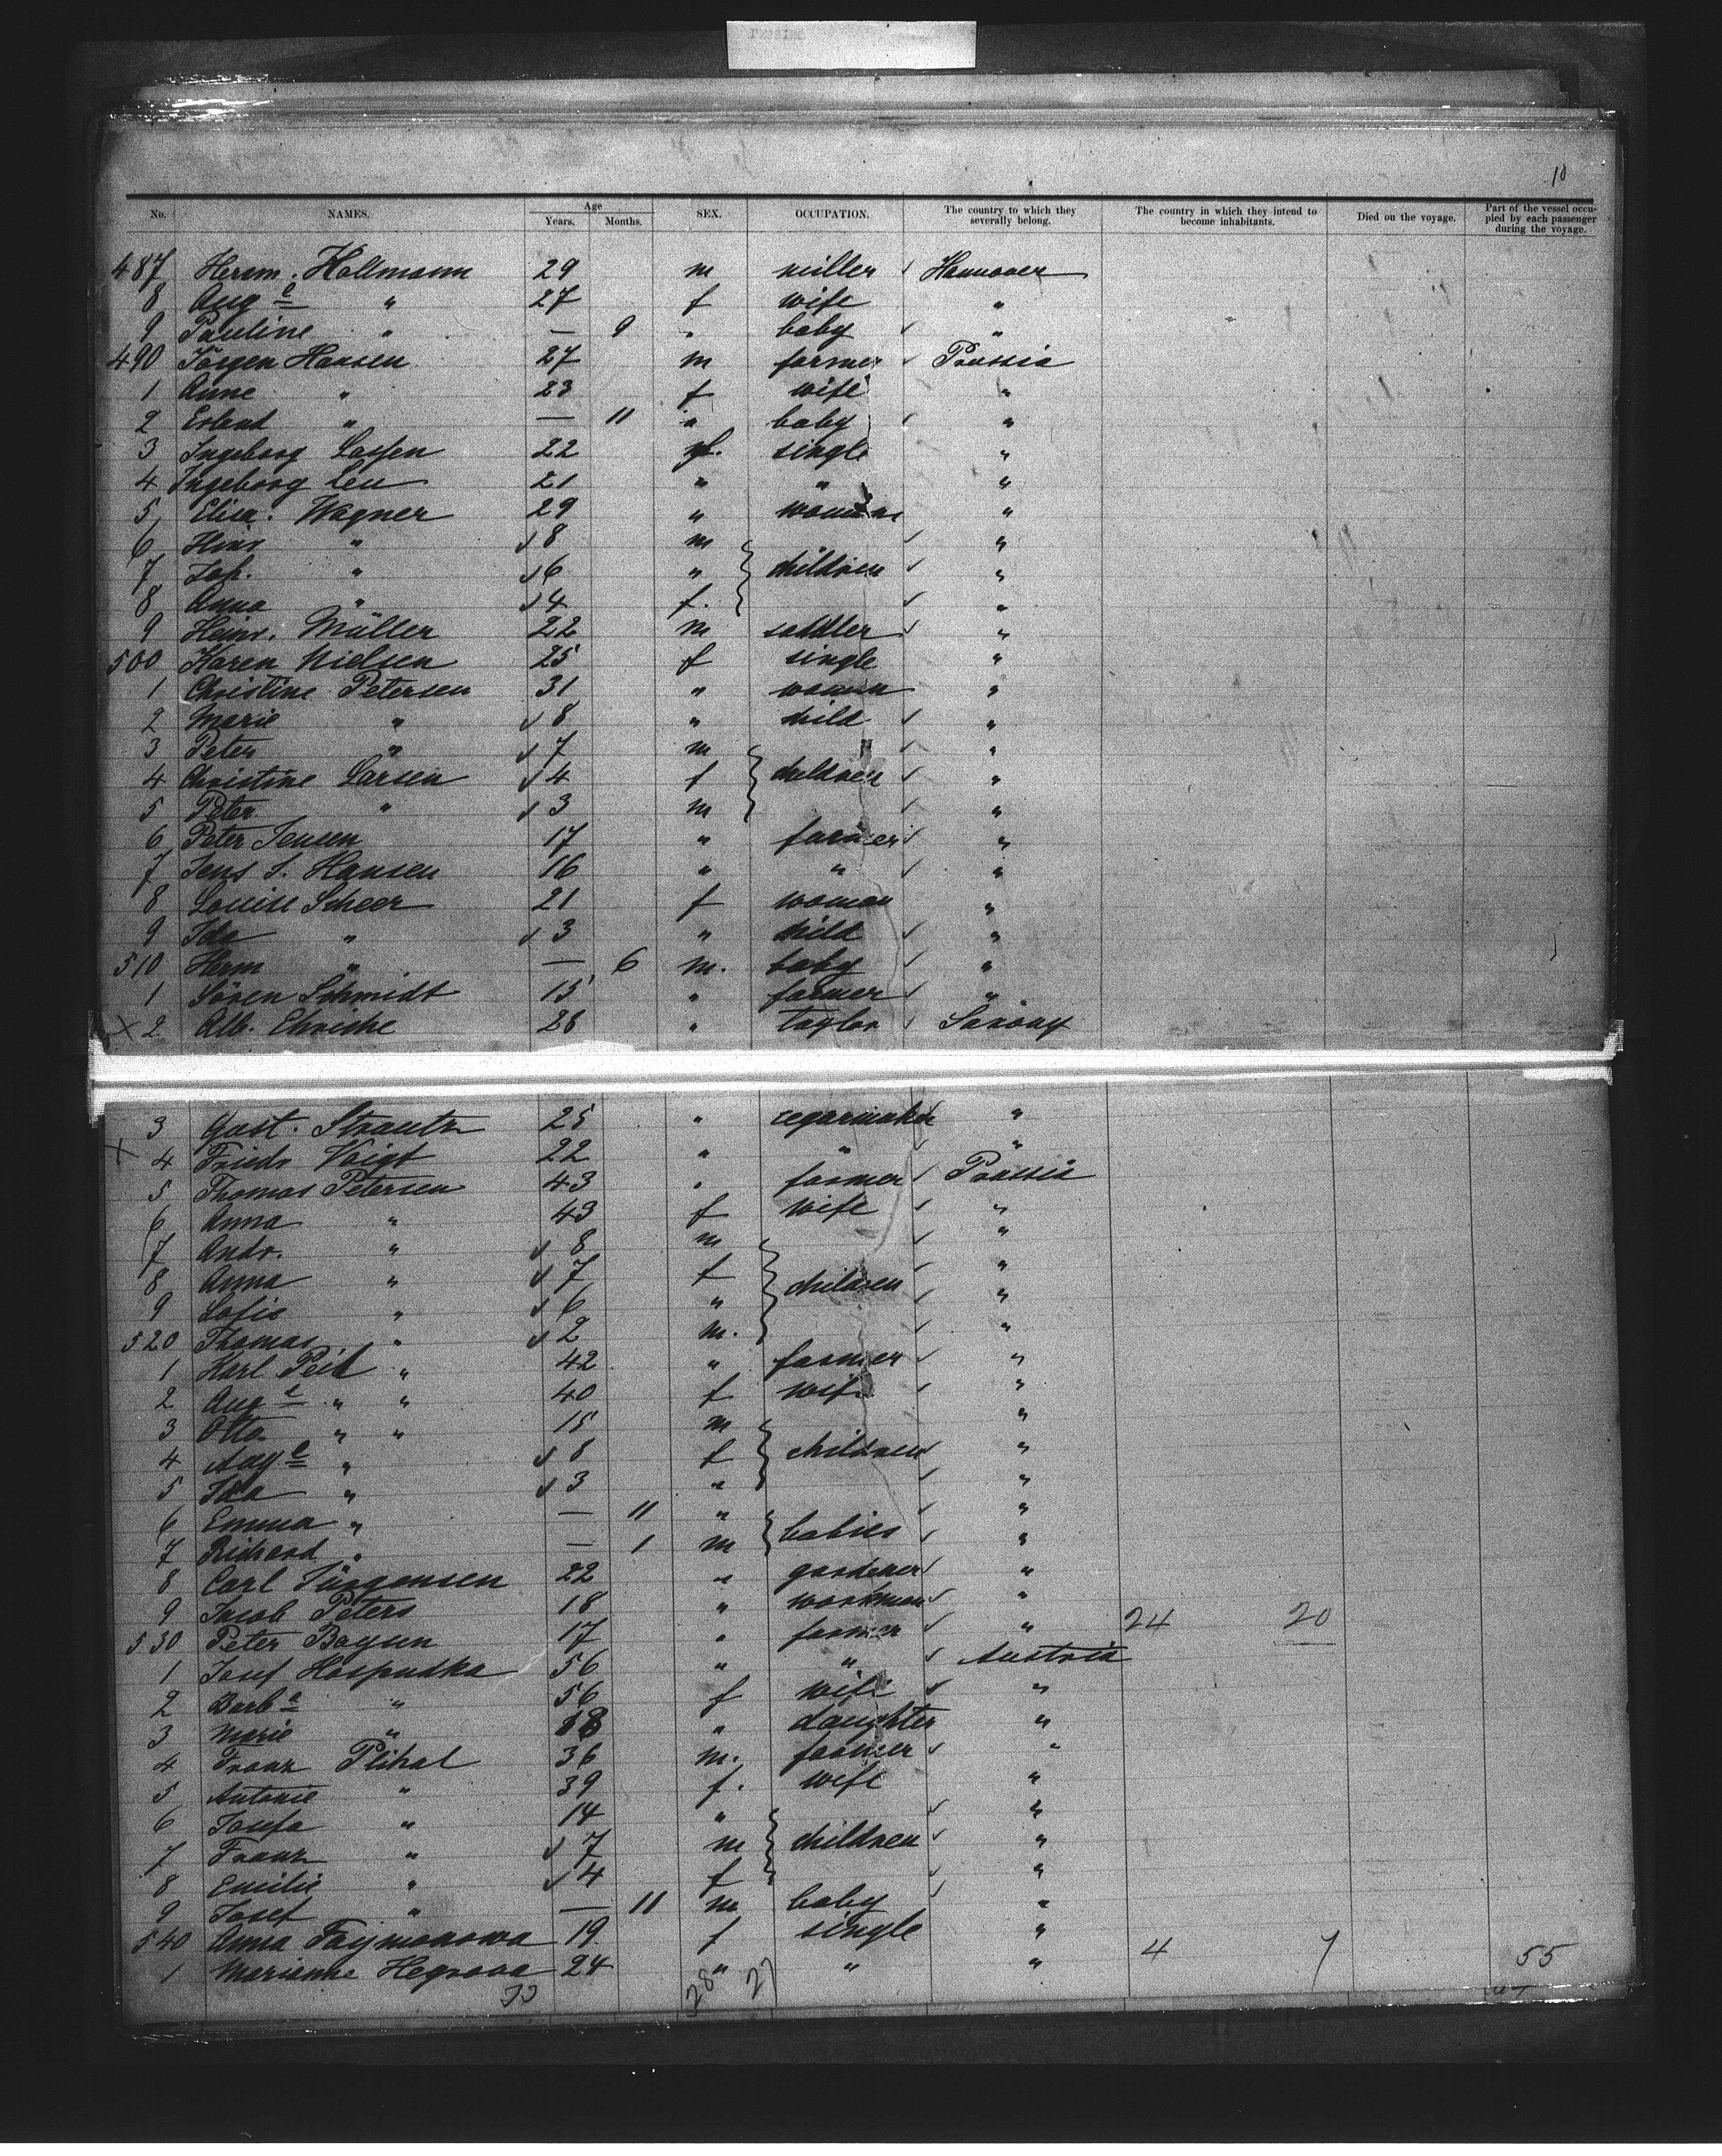 10
No. NAMES. Age Years. Months. SEX. OCCUPATION. The country to which they severally belong. The country in which they intend to become inhabitants. Died on the voyage. Part of the vessel occupied by each passenger during the voyage.
487 Herm. Hollmann 29 m miller Hannover
8 Auge " 27 f wife "
9 Pauline " — 9 " baby "
490 Jörgen Hansen 27 m farmer Prussia
1 Anne " 23 f wife "
2 " — 11 " baby "
3 Ingeborg Lassen 22 f. single "
4 Ingeborg Leu 21 " " "
5 Elisa. Wagner 29 " woman "
6 Hinr " 8 m "
7 Joh. " 6 " children "
8 Anna " 4 f. "
9 Heinr. Müller 22 m saddler "
500 Karen Nielsen 25 f single "
1 Christine Petersen 31 " woman "
2 Marie " 8 " child "
3 Peter " 7 m "
4 Christine Larsen 4 f children "
5 Peter " 3 m "
6 Peter Jensen 17 " farmer "
7 Jens J. Hansen 16 " " "
8 Louise Scheer 21 f woman "
9 Ida " 3 " child "
510 Herm " — 6 m. baby "
1 Sören Schmidt 15 " farmer "
x 2 Alb. 28 " taylor Saxony
3 Gust. 25 " cegarmaker "
x 4 Friedr Voigt 22 " " "
5 Thomas Petersen 43 " farmer Prussia
6 Anna " 43 f wife "
7 Andr. " 8 m "
8 Anna " 7 f children "
9 Sofie " 6 " "
520 Thomas " 2 m. "
1 Karl Peit " 42 " farmer "
2 Auge " " 40 f wife "
3 Otto " " 15 m "
4 Auge " 8 f children "
5 Ida " 3 " "
6 Emma " — 11 " "
7 Richard " — 1 m babies "
8 Carl Jürgensen 22 " gardener "
9 Jacob Peters 18 " workman "
530 Peter Boysen 17 " farmer " 24 20
1 Josef Hospudka 56 " " Austria
2 Barba " 56 f wife "
3 Marie " 18 " daughter "
4 Franz Plihal 36 m. farmer "
5 Antonie " 39 f. wife "
6 Josefa " 14 " "
7 Franz " 7 m children "
8 Emilie " 4 f "
9 Josef " — 11 m baby "
540 Anna 19 f single "
1 Marianne Hegrova 24 " " " 4 7 55
28 27